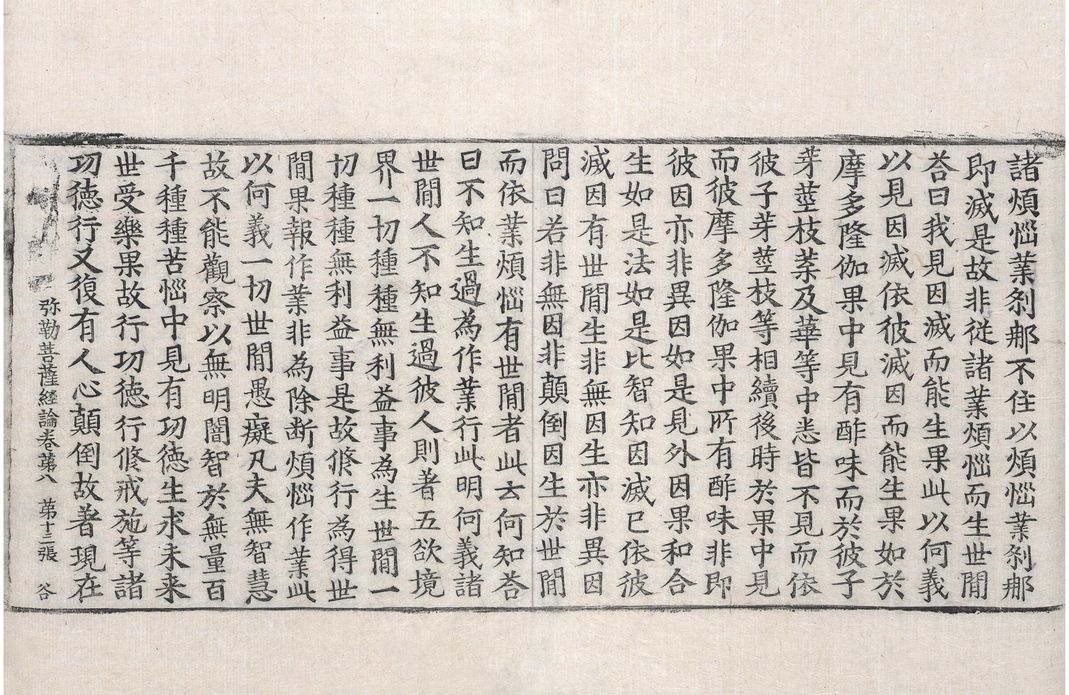 諸煩惱業刹那不住以煩惱業刹那
即滅是故非從諸業煩惱而生世間
荅曰我見因滅而能生果此以何義
以見因滅依彼滅因而能生果如於
摩多隆伽果中見有酢味而於彼子
芽莖枝葉及華等中悉皆不見而依
彼子芽莖枝等相續後時於果中見
而彼摩多隆伽果中所有酢味非即
彼因亦非異因如是見外因果和合
生如是法如是比智知因滅已依彼
滅因有世間生非無因生亦非異因
問曰若非無因非顛倒因生於世間
而依業煩惱有世間者此云何知荅
曰不知生過為作業行此明何義諸
世間人不知生過彼人則著五欲境
界一切種種無利益事為生世間一
切種種無利益事是故脩行為得世
間果報作業非為除断煩惱作業此
以何義一切世間愚癡凡夫無智慧
故不能觀察以無明闇智於無量百
千種種苦惱中見有功徳生求未来
世受樂果故行功徳行脩戒施等諸
功徳行又復有人心顛倒故著現在
弥勒菩薩経論卷苐八　苐十三張　谷